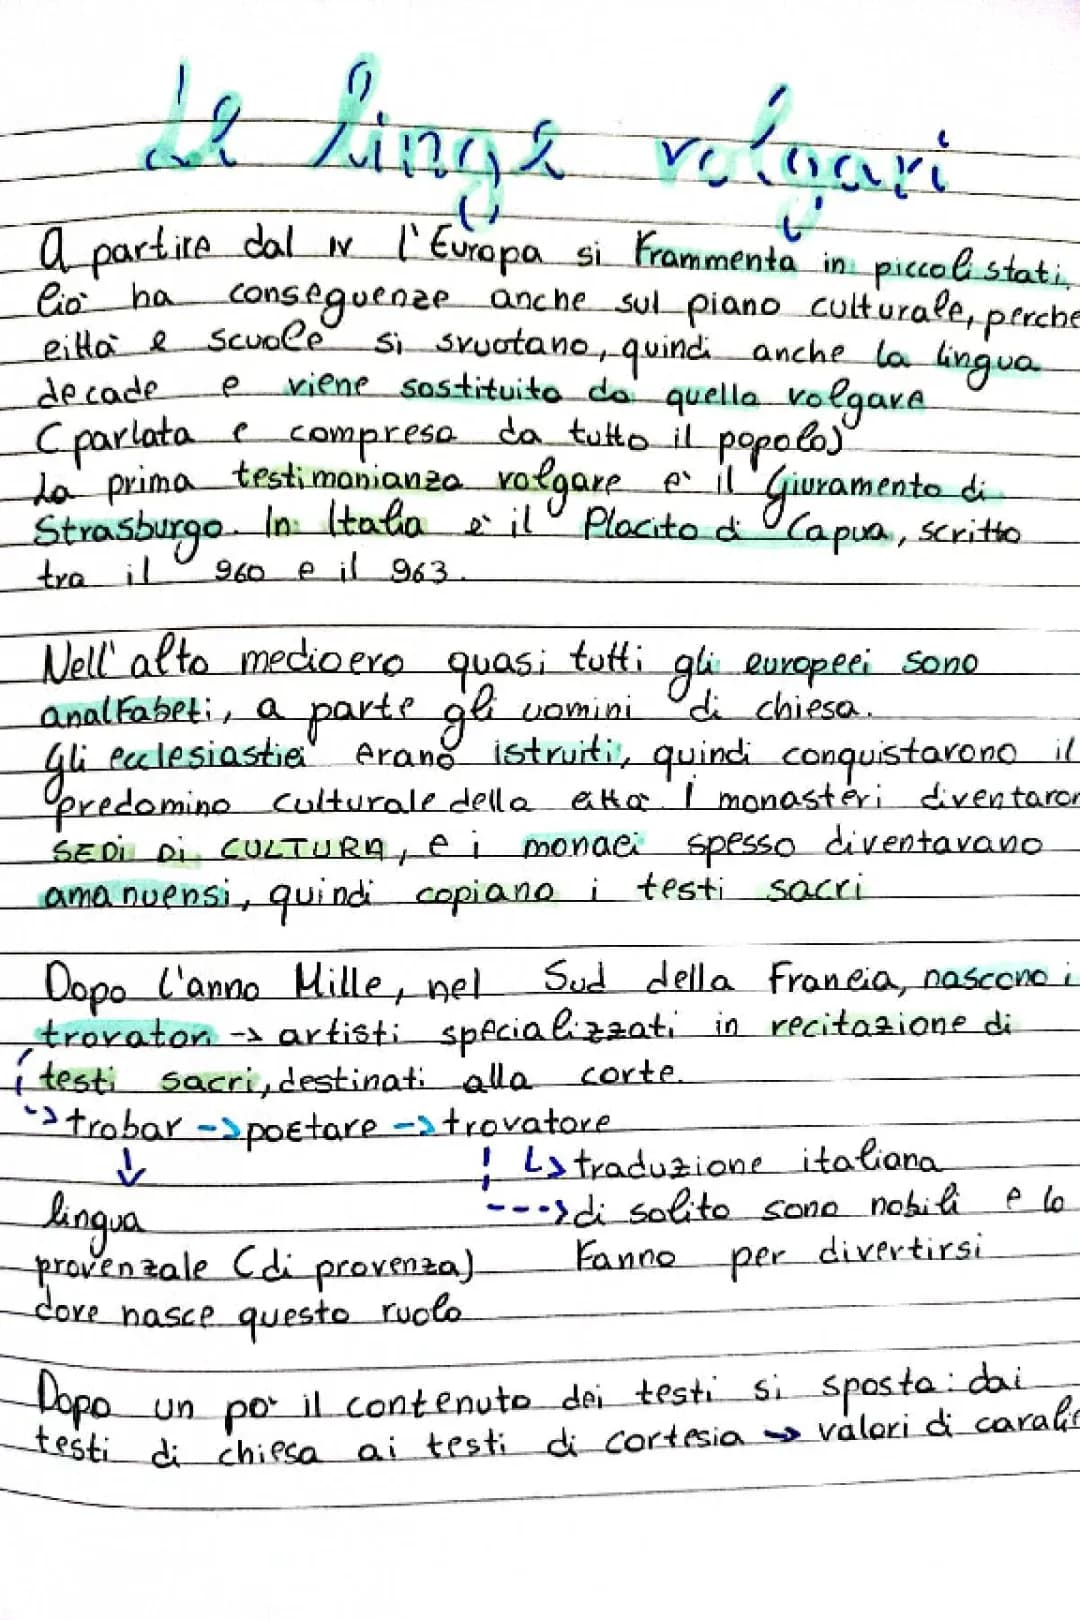 Le linge volgari
A partire dal IV l'Europa si frammenta in piccoli stati,
Ciò ha conseguenze anche sul piano culturale, perche
città e scuole si svuotano, quindi anche la lingua
decade e viene sostituito da quella volgare
(parlata e compresa da tutto il popolo)
La prima testimonianza volgare e' il Giuramento di
Strasburgo. In Italia è il Placito di Capua, scritto
tra il 960 e il 963.
Nell'alto medioevo quasi tutti gli europeei sono
analfabeti, a parte gli uomini di chiesa.
Gli ecclesiastici erano istruiti, quindi conquistarono il
predomino culturale della città. I monasteri diventaron
SEDI DI CULTURA, e i monaci spesso diventavano
amanuensi, quindi copiano i testi sacri
Dopo l'anno Mille, nel Sud della Francia, nascono i
trovatori -> artisti specializzati in recitazione di
testi sacri, destinati alla corte.
-> trobar -> poetare -> trovatore
↓ ↳ traduzione italiana
lingua ---> di solito sono nobili e lo
provenzale (di provenza) fanno per divertirsi
dove nasce questo ruolo
Dopo un po' il contenuto dei testi si sposta: dai
testi di chiesa ai testi di cortesia → valori di